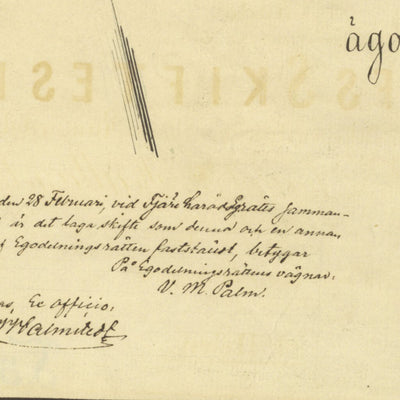 ägo
den 28 Februari, vid Fjäre häradsrätts samman-
är det laga skifte som denna och en annan
Egodelningsrätten fastställt, betygar
På Egodelningsrättens vägnar:
V. M. Palm.
Ex officio: